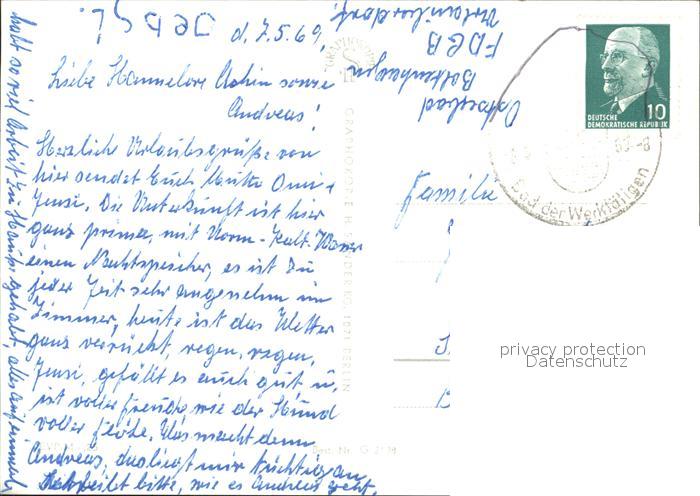 d. 7.5.69,
Liebe Hannelore Achim sowie
Andreas!
Herzliche Urlaubsgrüße von
hier sendet Euch Mutti Omi +
Jensi. Die Unterkunft ist hier
ganz prima, mit Warm-Kalt-Wasser
einen Nachtspeicher, es ist zu
jeder Zeit sehr angenehm im
Zimmer, heute ist das Wetter
ganz verrückt, regen, regen,
Jensi, gefällt es auch gut u,
ist voller Freude wie der Hund
voller Flöhe. Was macht denn
Andreas, das liegt mir tüchtig an
schreibt bitte, wie es Andreas geht.
habt so viel Arbeit zu Hause gehabt, alles auf einmal
Ostseebad
Boltenhagen
FDGB
Familie
DEUTSCHE
DEMOKRATISCHE REPUBLIK
10
-8
Bad der Werktätigen
privacy protection
Datenschutz
Best. Nr. G